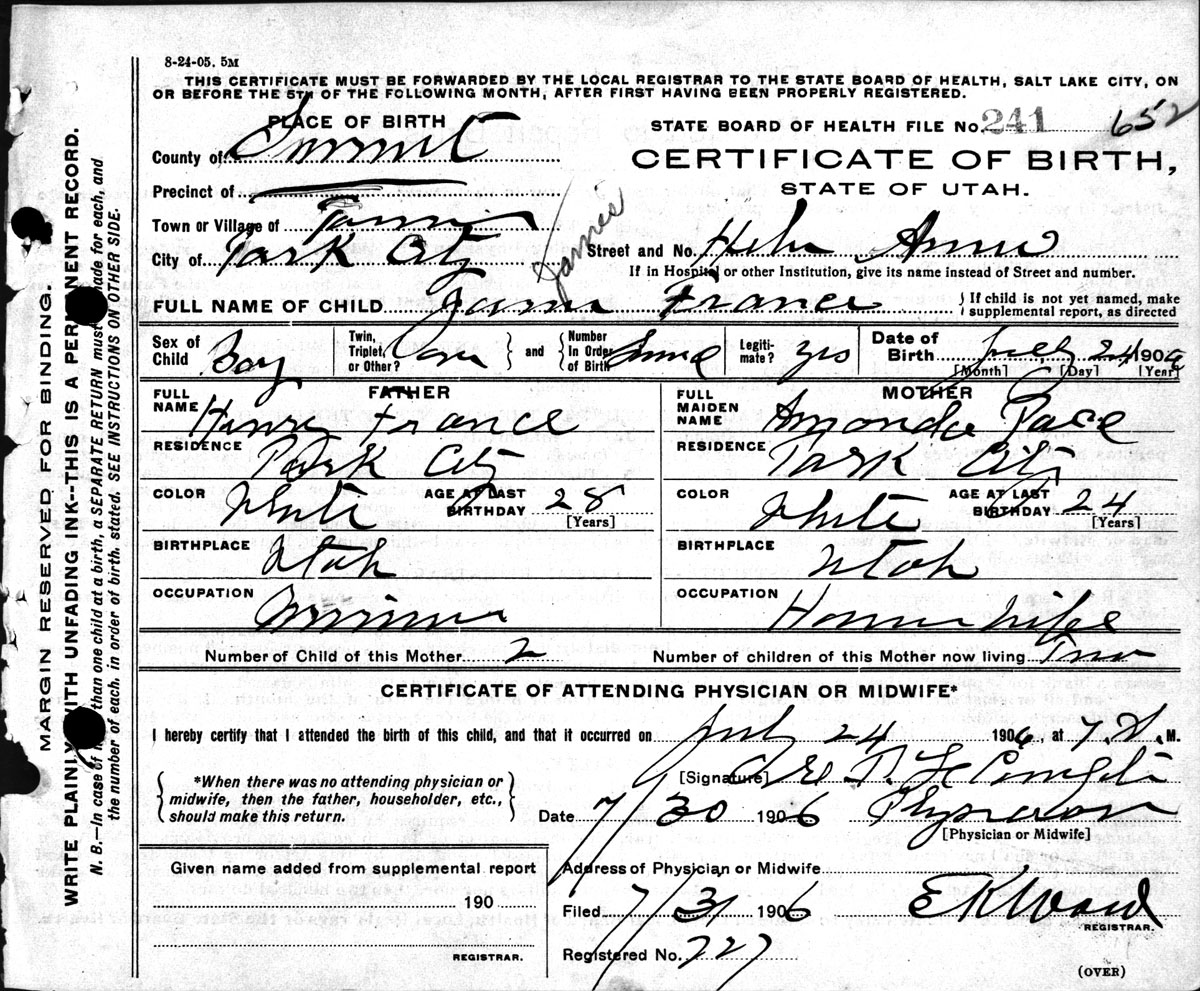 8-24-05. 5M
THIS CERTIFICATE MUST BE FORWARDED BY THE LOCAL REGISTRAR TO THE STATE BOARD OF HEALTH, SALT LAKE CITY, ON
OR BEFORE THE 5TH OF THE FOLLOWING MONTH, AFTER FIRST HAVING BEEN PROPERLY REGISTERED.
PLACE OF BIRTH
STATE BOARD OF HEALTH FILE No. 241 652
County of Summit
CERTIFICATE OF BIRTH,
Precinct of
STATE OF UTAH.
Town or Village of
James
City of Park City
Street and No.
If in Hospital or other Institution, give its name instead of Street and number.
FULL NAME OF CHILD James France
If child is not yet named, make
supplemental report, as directed
Sex of Child Boy
Twin, Triplet, or Other?
and
Number In Order of Birth
Legiti-mate? yes
Date of Birth July 24 1906
[Month] [Day] [Year]
FATHER
FULL NAME Henry France
RESIDENCE Park City
COLOR White AGE AT LAST BIRTHDAY 28
[Years]
BIRTHPLACE Utah
OCCUPATION Miner
MOTHER
FULL MAIDEN NAME Amanda Pace
RESIDENCE Park City
COLOR White AGE AT LAST BIRTHDAY 24
[Years]
BIRTHPLACE Utah
OCCUPATION House wife
Number of Child of this Mother 2 Number of children of this Mother now living Two
CERTIFICATE OF ATTENDING PHYSICIAN OR MIDWIFE*
I hereby certify that I attended the birth of this child, and that it occurred on July 24 1906, at 7 M.
[Signature]
*When there was no attending physician or
midwife, then the father, householder, etc.,
should make this return.
Date 7/30 1906 Physician
[Physician or Midwife]
Given name added from supplemental report
190
REGISTRAR.
Address of Physician or Midwife
Filed 7/31 1906 E K Ward
REGISTRAR.
Registered No. 227
(OVER)
MARGIN RESERVED FOR BINDING.
WRITE PLAINLY WITH UNFADING INK--THIS IS A PERMANENT RECORD.
N. B.--In case of than one child at a birth, a SEPARATE RETURN must made for each, and
the number of each, in order of birth, stated. SEE INSTRUCTIONS ON OTHER SIDE.